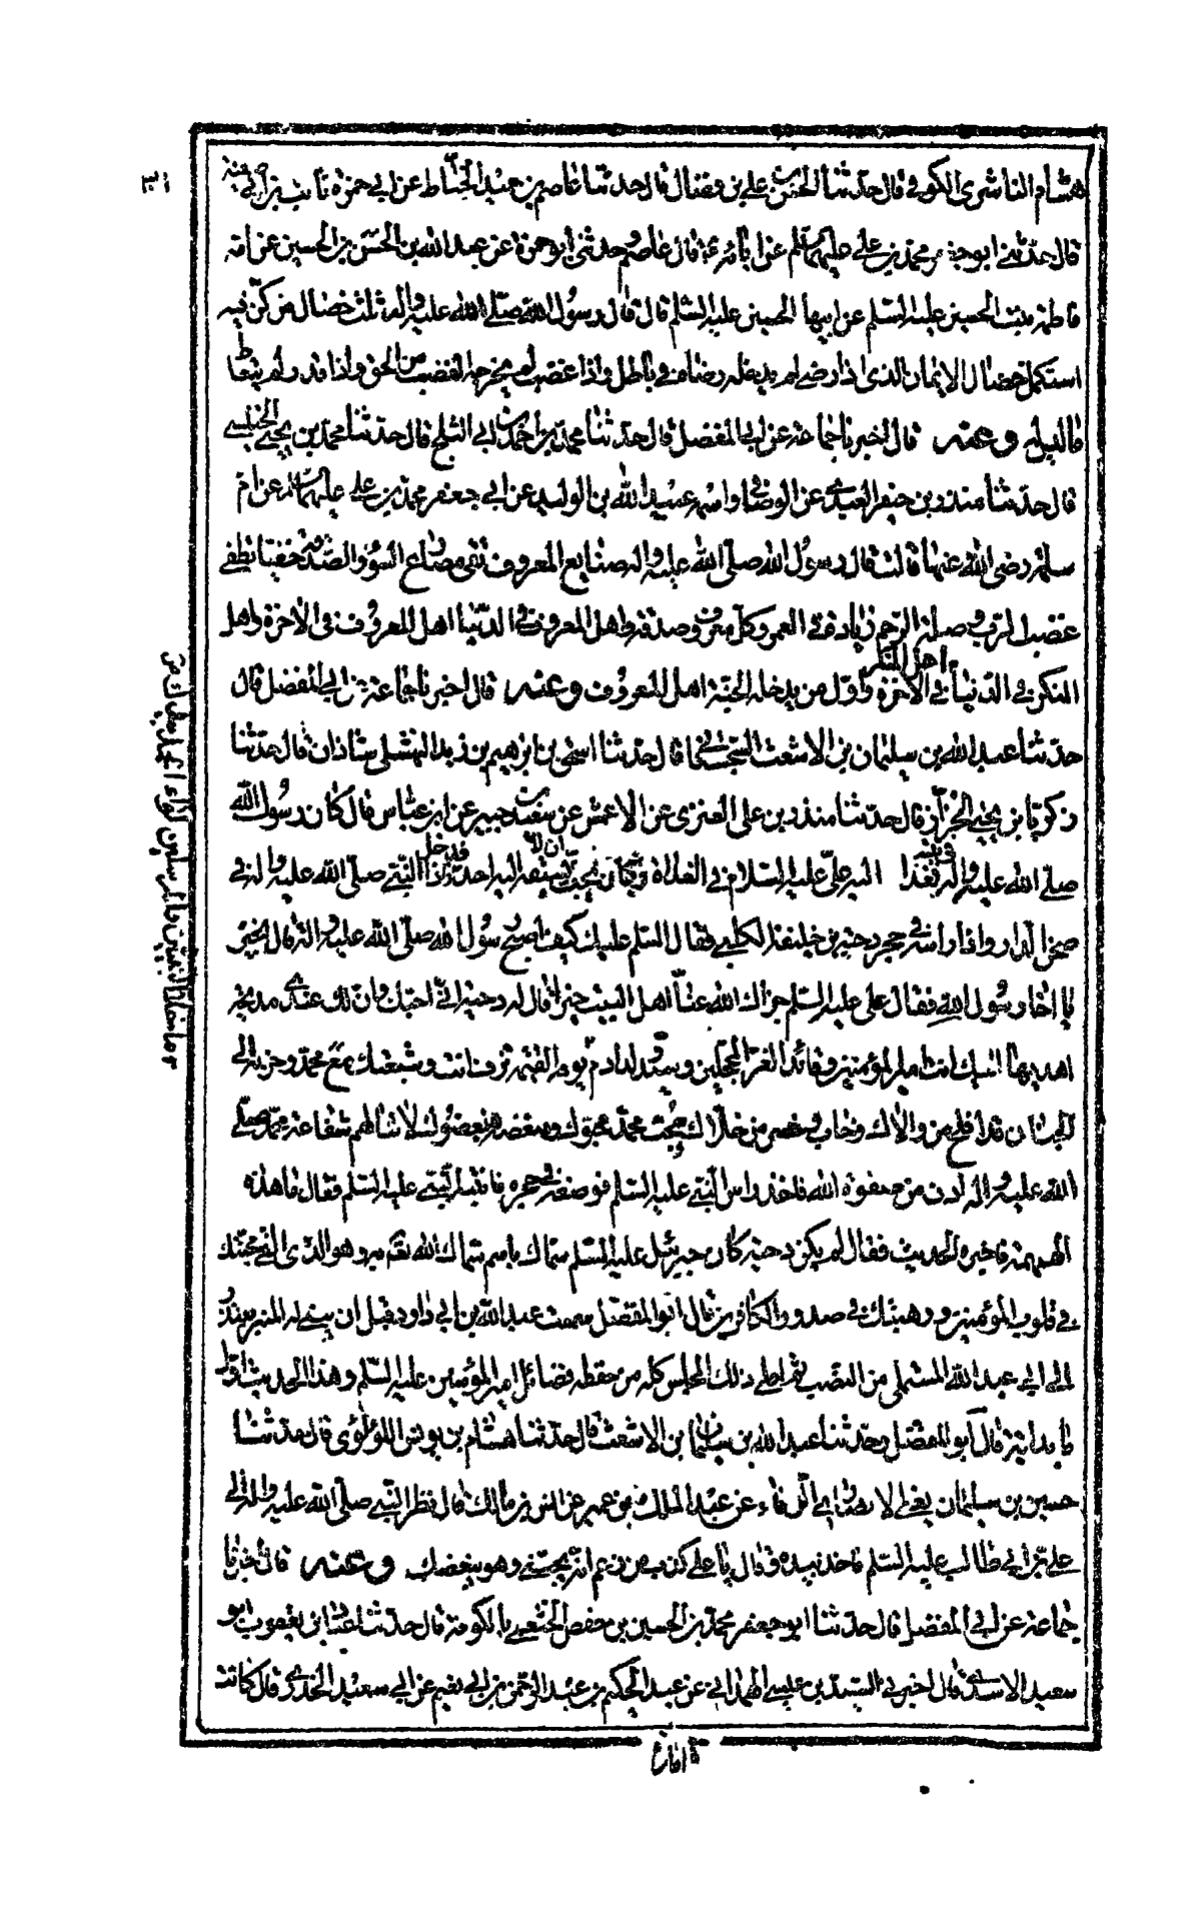 هشام الناشري الكوفي قال حدثنا الحسن بن علي بن فضال قال حدثنا عاصم بن حميد الحناط عن ابي حمزة ثابت بن ابي صفية
قال حدثني ابو جعفر محمد بن علي عليهما السلم عن آبائه قال عاصم وحدثني ابو حمزة عن عبد الله بن الحسن بن الحسين عن امه
فاطمة بنت الحسين عليه السلم عن ابيها الحسين عليه السلم قال قال رسول الله صلى الله عليه واله ثلث خصال من كن فيه
استكمل خصال الايمان الذي اذا رضي لم يدخله رضاه في باطل واذا غضب لم يخرجه الغضب من الحق واذا قدر لم يتعاط
ما ليس له وعنه قال اخبرنا جماعة عن ابي المفضل قال حدثنا محمد بن احمد بن ابي الثلج قال حدثنا محمد بن يحيى الخنيسي
قال حدثنا منذر بن جيفر العبدي عن الوصافي واسمه عبيد الله بن الوليد عن ابي جعفر محمد بن علي عليهما السلم عن ام
سلمة رضي الله عنها قالت قال رسول الله صلى الله عليه واله صنايع المعروف تقي مصارع السوء والصدقة خفيا تطفي
غضب الرب وصلة الرحم زيادة في العمر وكل معروف صدقة واهل المعروف في الدنيا اهل المعروف في الاخرة واهل
المنكر في الدنيا اهل المنكر في الاخرة واول من يدخل الجنة اهل المعروف وعنه قال اخبرنا جماعة عن ابي المفضل قال
حدثنا عبد الله بن سليمان بن الاشعث السجستاني قال حدثنا اسحق بن ابرهيم بن زيد النهشلي شاذان قال حدثنا
زكريا بن يحيى الخزاز قال حدثنا منذر بن علي العنزي عن الاعمش عن سعيد بن جبير عن ابن عباس قال كان رسول الله
صلى الله عليه واله فغدا اليه علي عليه السلام في الغداة وكان يحب ان لا يسبقه اليه احد فدخل فاذا النبي صلى الله عليه واله في
صحن الدار واذا راسه في حجر دحية بن خليفة الكلبي فقال السلم عليك كيف اصبح رسول الله صلى الله عليه واله قال بخير
يا اخا رسول الله فقال علي عليه السلم جزاك الله عنا اهل البيت خيرا قال له دحية اني احبك وان لك عندي مديحة
اهديها اليك انت امير المؤمنين وقائد الغر المحجلين وسيد ولد ادم يوم القيمة تزف انت وشيعتك مع محمد وحزبه الى
الجنان قد افلح من والاك وخاب وخسر من خلاك بحب محمد محبوك وببغضه مبغضوك لا تنالهم شفاعة محمد صلى
الله عليه واله ادن من صفوة الله فاخذ راس النبي عليه السلم فوضعه في حجره فانتبه النبي عليه السلم فقال ما هذه
الهمهمة فاخبره الحديث فقال لم يكن دحية كان جبرئيل عليه السلم سماك باسم سماك الله تعالى به وهو الذي القى محبتك
في قلوب المؤمنين ورهبتك في صدور الكافرين قال ابو المفضل سمعت عبد الله بن ابي داود قبل ان يبنى له المنبر
الى ابي عبد الله المستملي من النصب ثم املى ذلك المجلس كله من حفظه فضائل امير المؤمنين عليه السلم وهذا الحديث اول
ما بدا به قال ابو المفضل وحدثنا عبد الله بن سليمان بن الاشعث قال حدثنا هشام بن يونس اللؤلؤي قال حدثنا
حسين بن سليمان يعني الانصاري الرفاء عن عبد الملك بن عمير عن انس بن مالك قال نظر النبي صلى الله عليه واله الى
علي بن ابي طالب عليه السلم فاخذ بيده وقال يا علي كذب من زعم انه يحبني وهو يبغضك وعنه قال اخبرنا
جماعة عن ابي المفضل قال حدثنا ابو جعفر محمد بن الحسين بن حفص الخثعمي بالكوفة قال حدثنا عباد بن يعقوب ابو
سعيد الاسدي قال اخبرني السيد بن عيسى الهمداني عن عبد الحكيم بن عبد الرحمن بن ابي نعيم عن ابي سعيد الخدري قال كانت